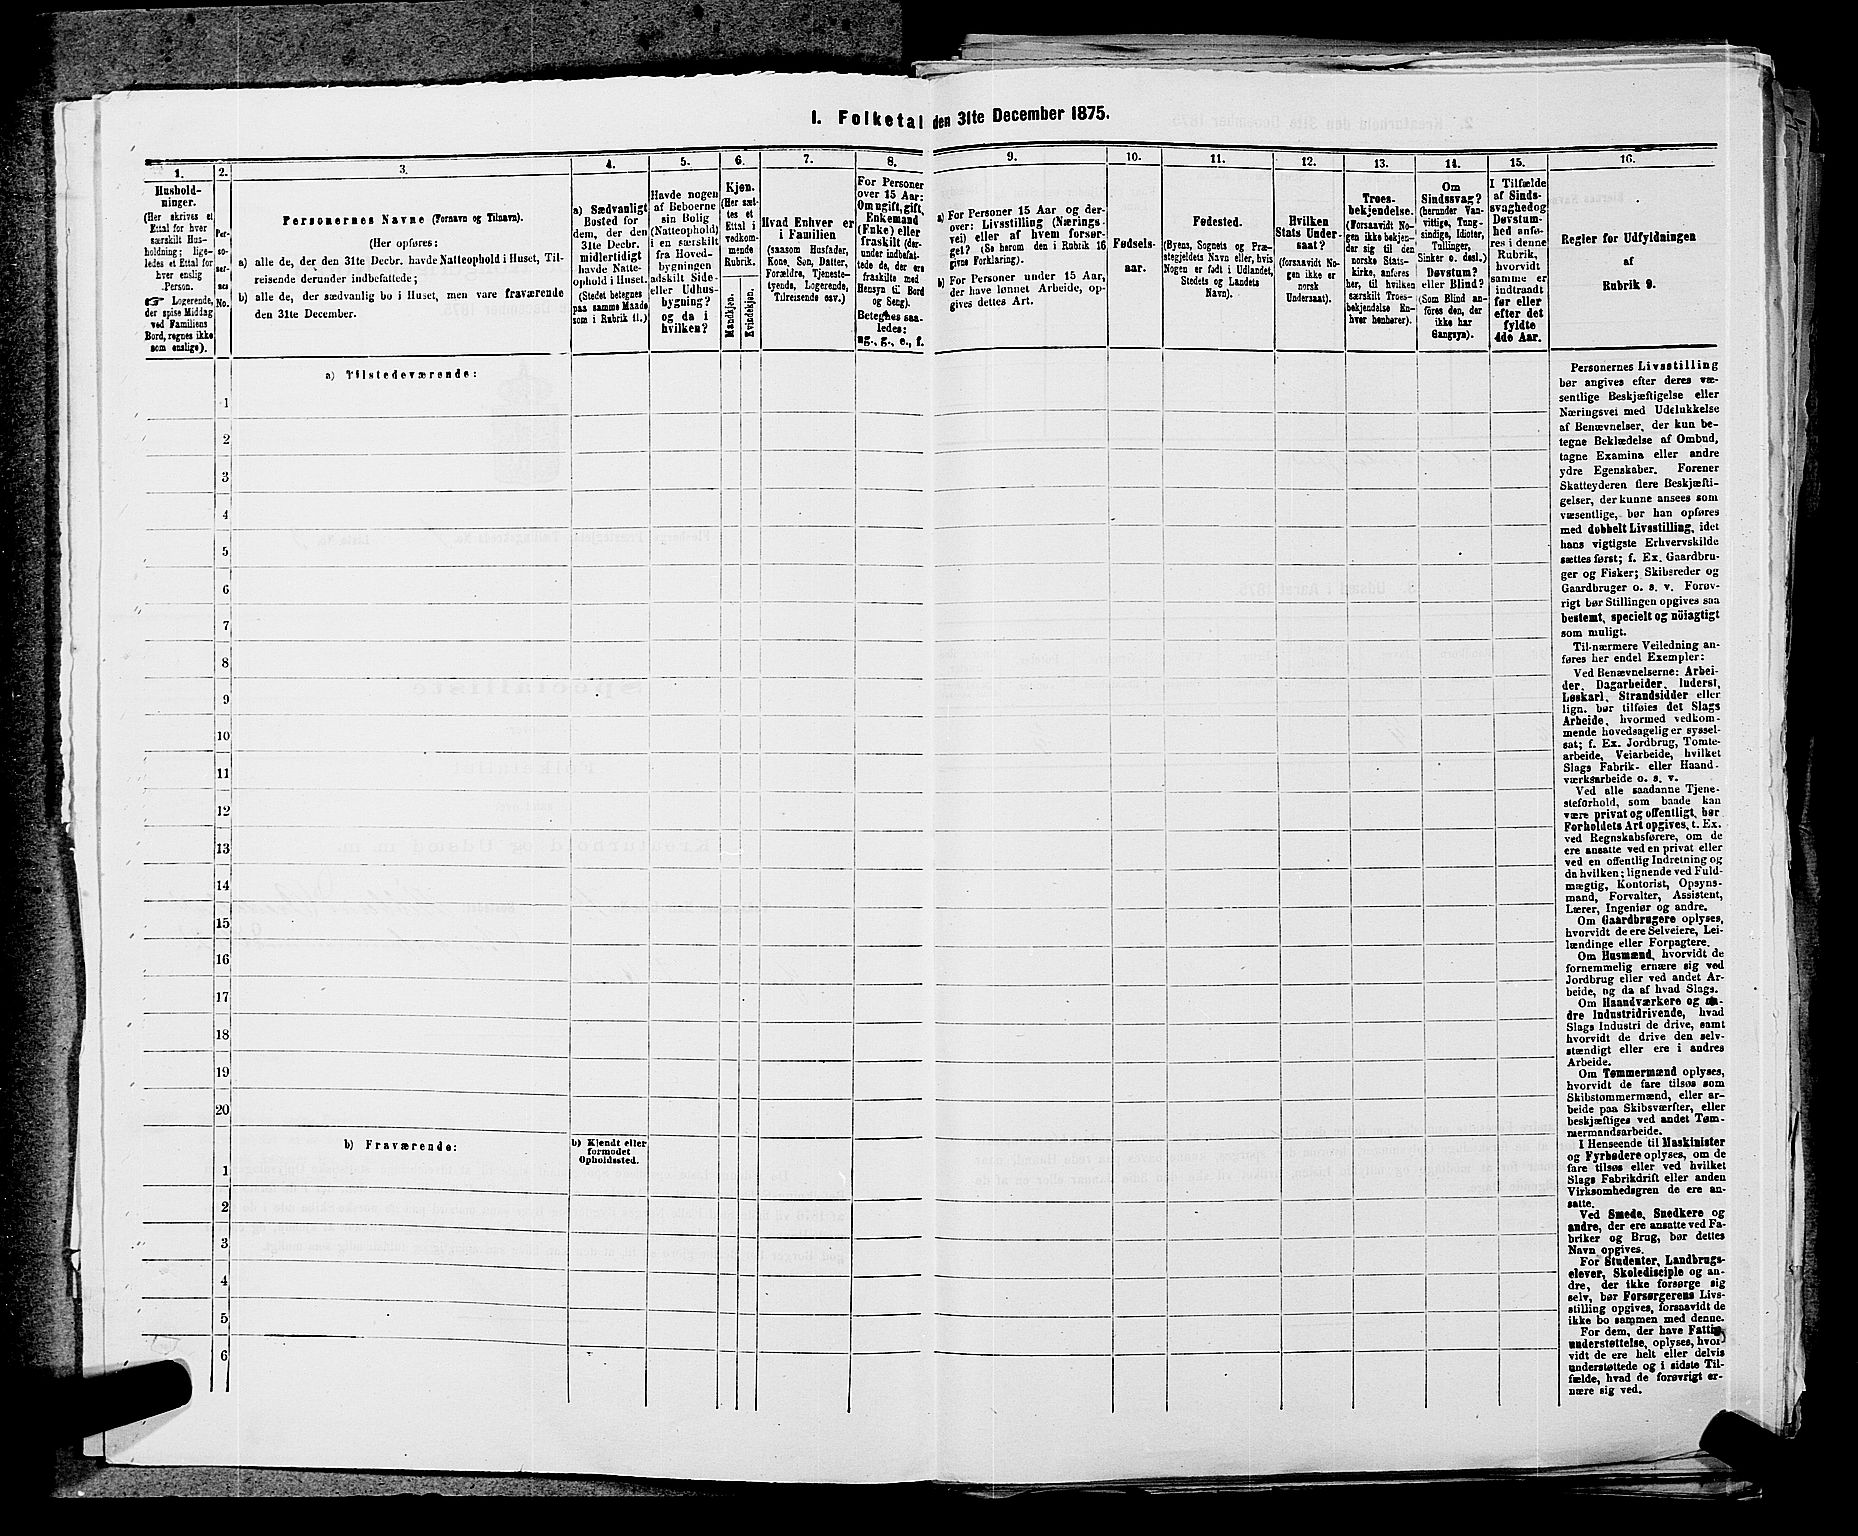 I. Folketal den 31te December 1875.
1.
Hushold-
ninger.
(Her skrives et
Ettal for hver
særskilt Hus-
holdning; lige-
ledes et Ettal for
hver enslig
Person.
☞ Logerende,
der spise Middag
ved Familiens
Bord, regnes ikke
som enslige).
2.
Per-
so-
ner-
nes
No.
3.
Personernes Navne (Fornavn og Tilnavn).
(Her opføres:
a) alle de, der den 31te Decbr. havde Natteophold i Huset, Til-
reisende derunder indbefattede;
b) alle de, der sædvanlig bo i Huset, men vare fraværende
den 31te December.
4.
a) Sædvanligt
Bosted for
dem, der den
31te Decbr.
midlertidigt
havde Natte-
ophold i Huset.
(Stedet betegnes
paa samme Maade
som i Rubrik 11.)
5.
Havde nogen
af Beboerne
sin Bolig
(Natteophold)
i en særskilt
fra Hoved-
bygningen
adskilt Side-
eller Udhus-
bygning?
og da i
hvilken?
6.
Kjøn.
(Her sæt-
tes et
Ettal i
vedkom-
mende
Rubrik.
Mandkjøn.
Kvindekjøn.
7.
Hvad Enhver er
i Familien
(saasom Husfader,
Kone, Søn, Datter,
Forældre, Tjeneste-
tyende, Logerende,
Tilreisende osv.)
8.
For Personer
over 15 Aar:
Om ugift, gift,
Enkemand
(Enke) eller
fraskilt (der-
under indbefat-
tede de, der ere
fraskilte med
Hensyn til Bord
og Seng).
Betegnes saa-
ledes:
ug., g., e., f.
9.
a) For Personer 15 Aar og der-
over: Livsstilling (Nærings-
vei) eller af hvem forsør-
get? (Se herom den i Rubrik 16
givne Forklaring).
b) For Personer under 15 Aar,
der have lønnet Arbeide, op-
gives dettes Art.
10.
Fødsels-
aar.
11.
Fødested.
(Byens, Sognets og Præ-
stegjeldets Navn eller, hvis
Nogen er født i Udlandet,
Stedets og Landets
Navn).
12.
Hvilken
Stats Under-
saat?
(forsaavidt No-
gen ikke er
norsk
Undersaat).
13.
Troes-
bekjendelse.
(Forsaavidt No-
gen ikke bekjen-
der sig til den
norske Stats-
kirke, anføres
her, til hvilken
særskilt Troes-
bekjendelse En-
hver henhører).
14.
Om
Sindssvag?
(herunder Van-
vittige, Tung-
sindige, Idioter,
Tullinger,
Sinker o. desl.)
Døvstum?
eller Blind?
(Som Blind an-
føres den, der
ikke har
Gangsyn).
15.
I Tilfælde
af Sinds-
svaghed og
Døvstum-
hed anfø-
res i denne
Rubrik,
hvorvidt
samme er
indtraadt
før eller
efter det
fyldte
4de Aar.
16.
Regler for Udfyldningen
af
Rubrik 9.
a) Tilstedeværende:
1
2
3
4
5
6
7
8
9
10
11
12
13
14
15
16
17
18
19
20
b) Fraværende:
b) Kjendt eller
formodet
Opholdssted.
1
2
3
4
5
6
Personernes Livsstilling
bør angives efter deres væ-
sentlige Beskjæftigelse eller
Næringsvei med Udelukkelse
af Benævnelser, der kun be-
tegne Beklædelse af Ombud,
tagne Examina eller andre
ydre Egenskaber. Forener
Skatteyderen flere Beskjæfti-
gelser, der kunne ansees som
væsentlige, bør han opføres
med dobbelt Livsstilling, idet
hans vigtigste Erhvervskilde
sættes først; f. Ex. Gaardbru-
ger og Fisker; Skibsreder og
Gaardbruger o. s. v. Forøv-
rigt bør Stillingen opgives saa
bestemt, specielt og nöiagtigt
som muligt.
Til nærmere Veiledning an-
føres her endel Exempler:
Ved Benævnelserne: Arbei-
der, Dagarbeider, Inderst,
Løskarl, Strandsidder eller
lign. bør tilføies det Slags
Arbeide, hvormed vedkom-
mende hovedsagelig er syssel-
sat; f. Ex. Jordbrug, Tomte-
arbeide, Veiarbeide, hvilket
Slags Fabrik- eller Haand-
værksarbeide o. s. v.
Ved alle saadanne Tjene-
steforhold, som baade kan
være privat og offentligt, bør
Forholdets Art opgives, t. Ex.
ved Regnskabsførere, om de
ere ansatte ved en privat eller
ved en offentlig Indretning og
da hvilken; lignende ved Fuld-
mægtig, Kontorist, Opsyns-
mand, Forvalter, Assistent,
Lærer, Ingeniør og andre.
Om Gaardbrugere oplyses,
hvorvidt de ere Selveiere, Lei-
lændinge eller Forpagtere.
Om Husmænd, hvorvidt de
fornemmelig ernære sig ved
Jordbrug eller ved andet Ar-
beide, og da af hvad Slags.
Om Haandværkere og an-
dre Industridrivende, hvad
Slags Industri de drive, samt
hvorvidt de drive den selv-
stændigt eller ere i andres
Arbeide.
Om Tømmermænd oplyses,
hvorvidt de fare tilsøs som
Skibstømmermænd, eller ar-
beide paa Skibsværfter, eller
beskjæftiges ved andet Tøm-
mermandsarbeide.
I Henseende til Maskinister
og Fyrbødere oplyses, om de
fare tilsøs eller ved hvilket
Slags Fabrikdrift eller anden
Virksomhedsgren de ere an-
satte.
Ved Smede, Snedkere og
andre, der ere ansatte ved Fa-
briker og Brug, bør dettes
Navn opgives.
For Studenter, Landbrugs-
elever, Skoledisciple og an-
dre, der ikke forsørge sig
selv, bør Forsørgerens Livs-
stilling opgives, forsaavidt de
ikke bo sammen med denne.
For dem, der have Fattig-
understøttelse, oplyses, hvor-
vidt de ere helt eller delvis
understøttede og i sidste Til-
fælde, hvad de forøvrigt er-
nære sig ved.